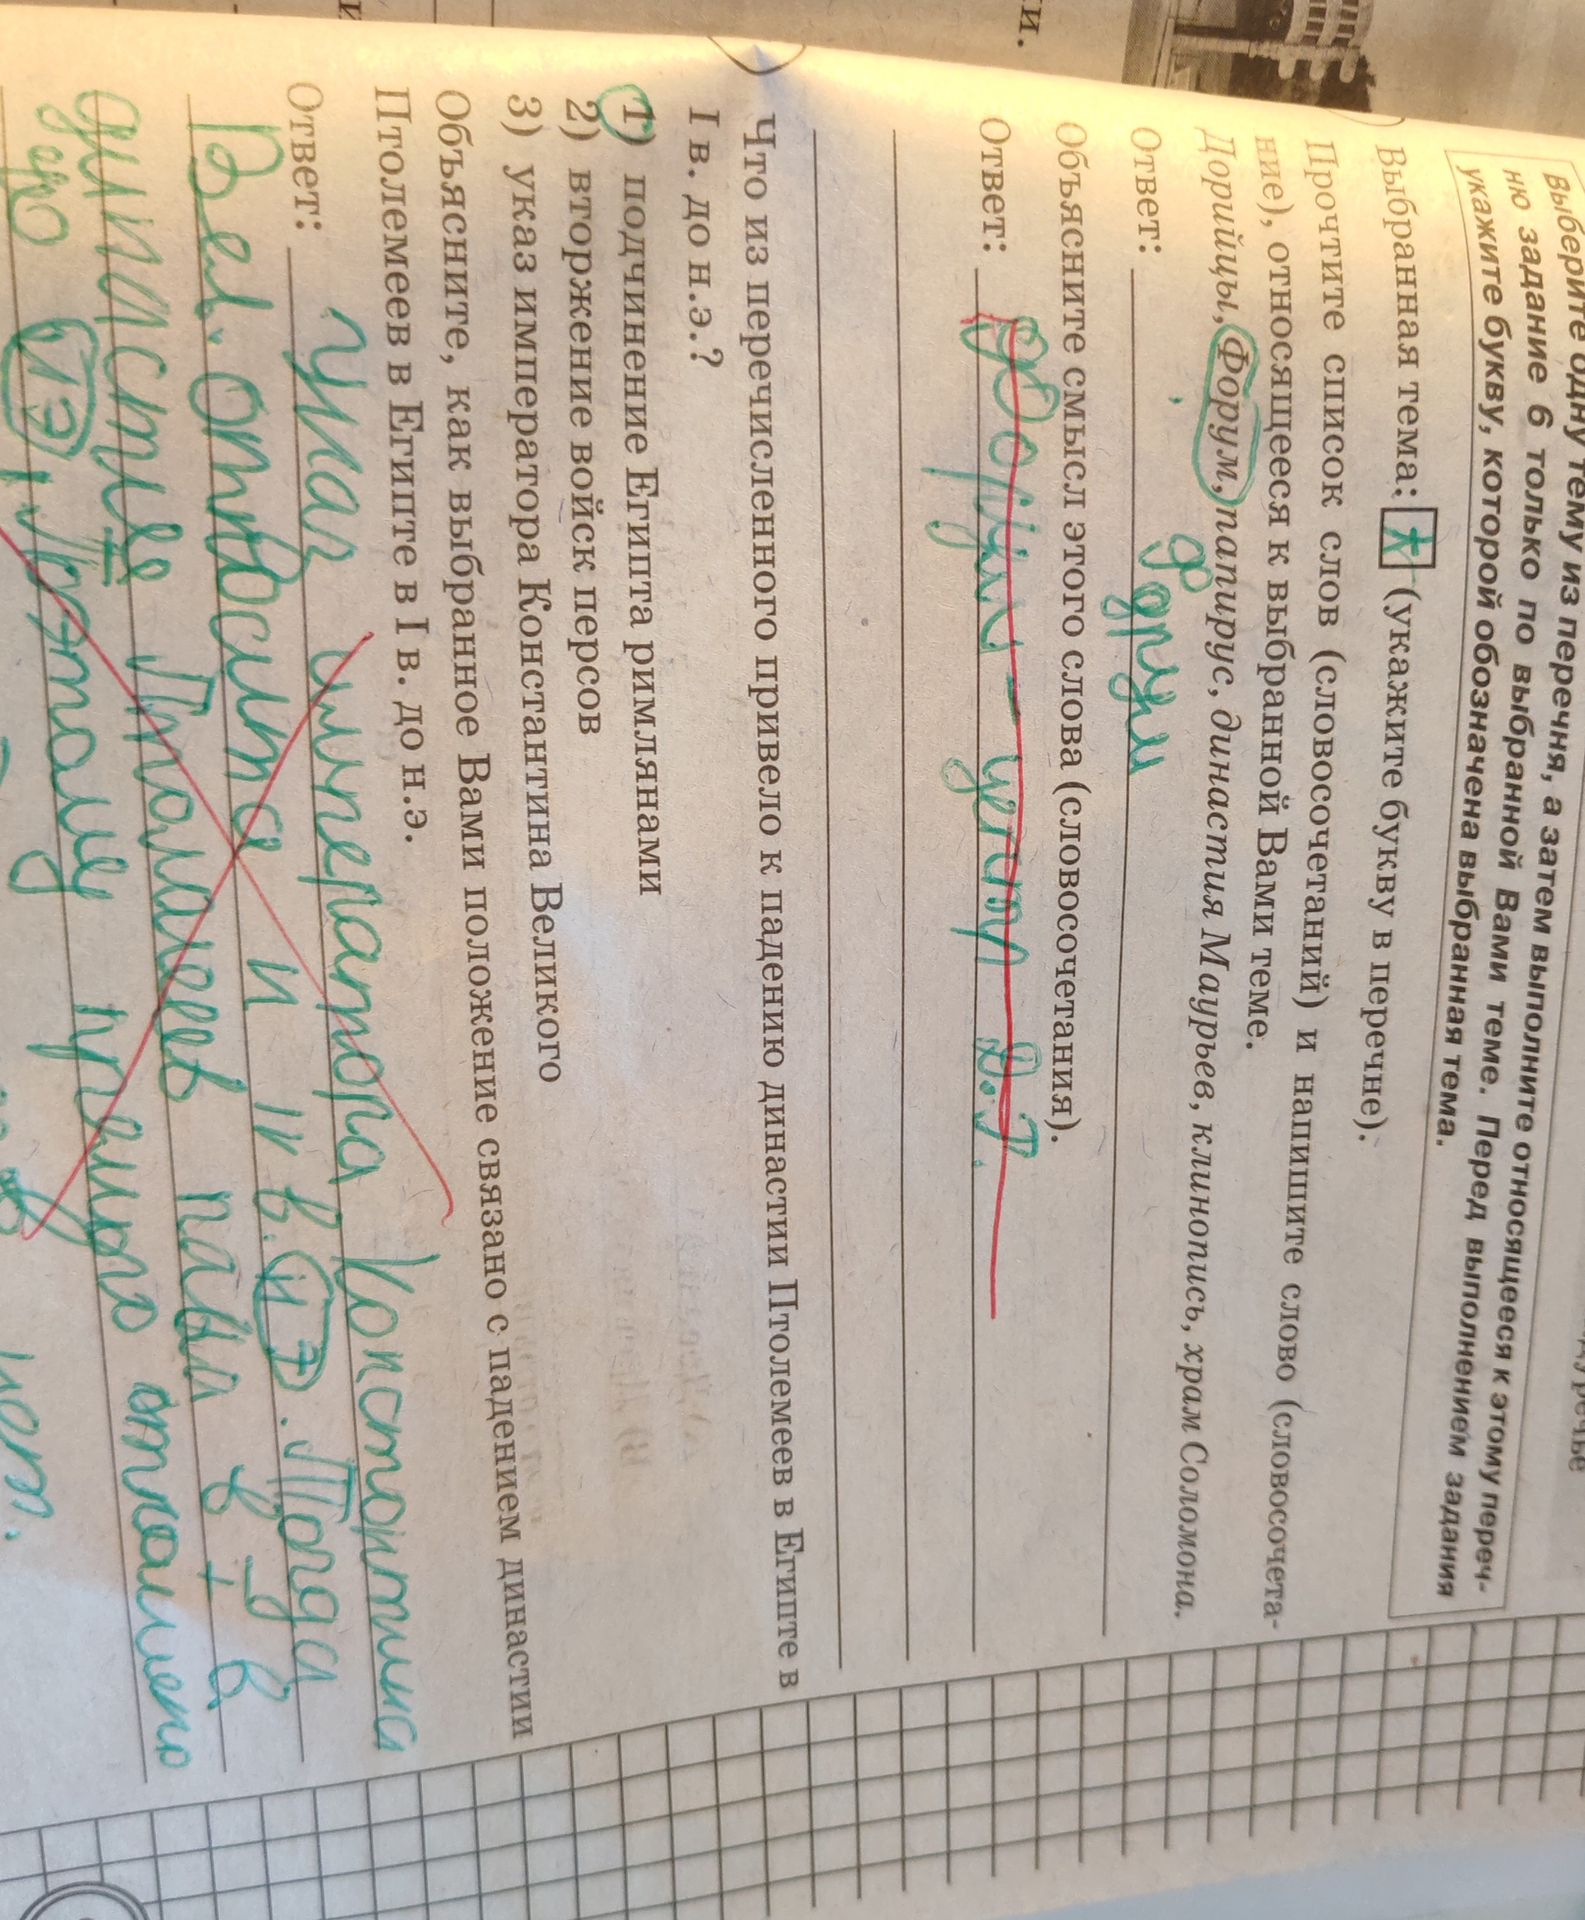 и.
Выберите одну тему из перечня, а затем выполните относящееся к этому переч-
ню задание 6 только по выбранной Вами теме. Перед выполнением задания
укажите букву, которой обозначена выбранная тема.
Выбранная тема: (укажите букву в перечне).
Прочтите список слов (словосочетаний) и напишите слово (словосочета-
ние), относящееся к выбранной Вами теме.
Дорийцы, Форум, папирус, династия Маурьев, клинопись, храм Соломона.
Ответ: форум
Объясните смысл этого слова (словосочетания).
Ответ: Форум – центр Д.Г.
Что из перечисленного привело к падению династии Птолемеев в Египте в
I в. до н.э.?
1) подчинение Египта римлянами
2) вторжение войск персов
3) указ императора Константина Великого
Объясните, как выбранное Вами положение связано с падением династии
Птолемеев в Египте в I в. до н.э.
Ответ: Указ императора Константина
Вел. относится к IV в. н э. Тогда
династие Птолемеев пала в I в
до н э, поэтому прямого отношения
нет.